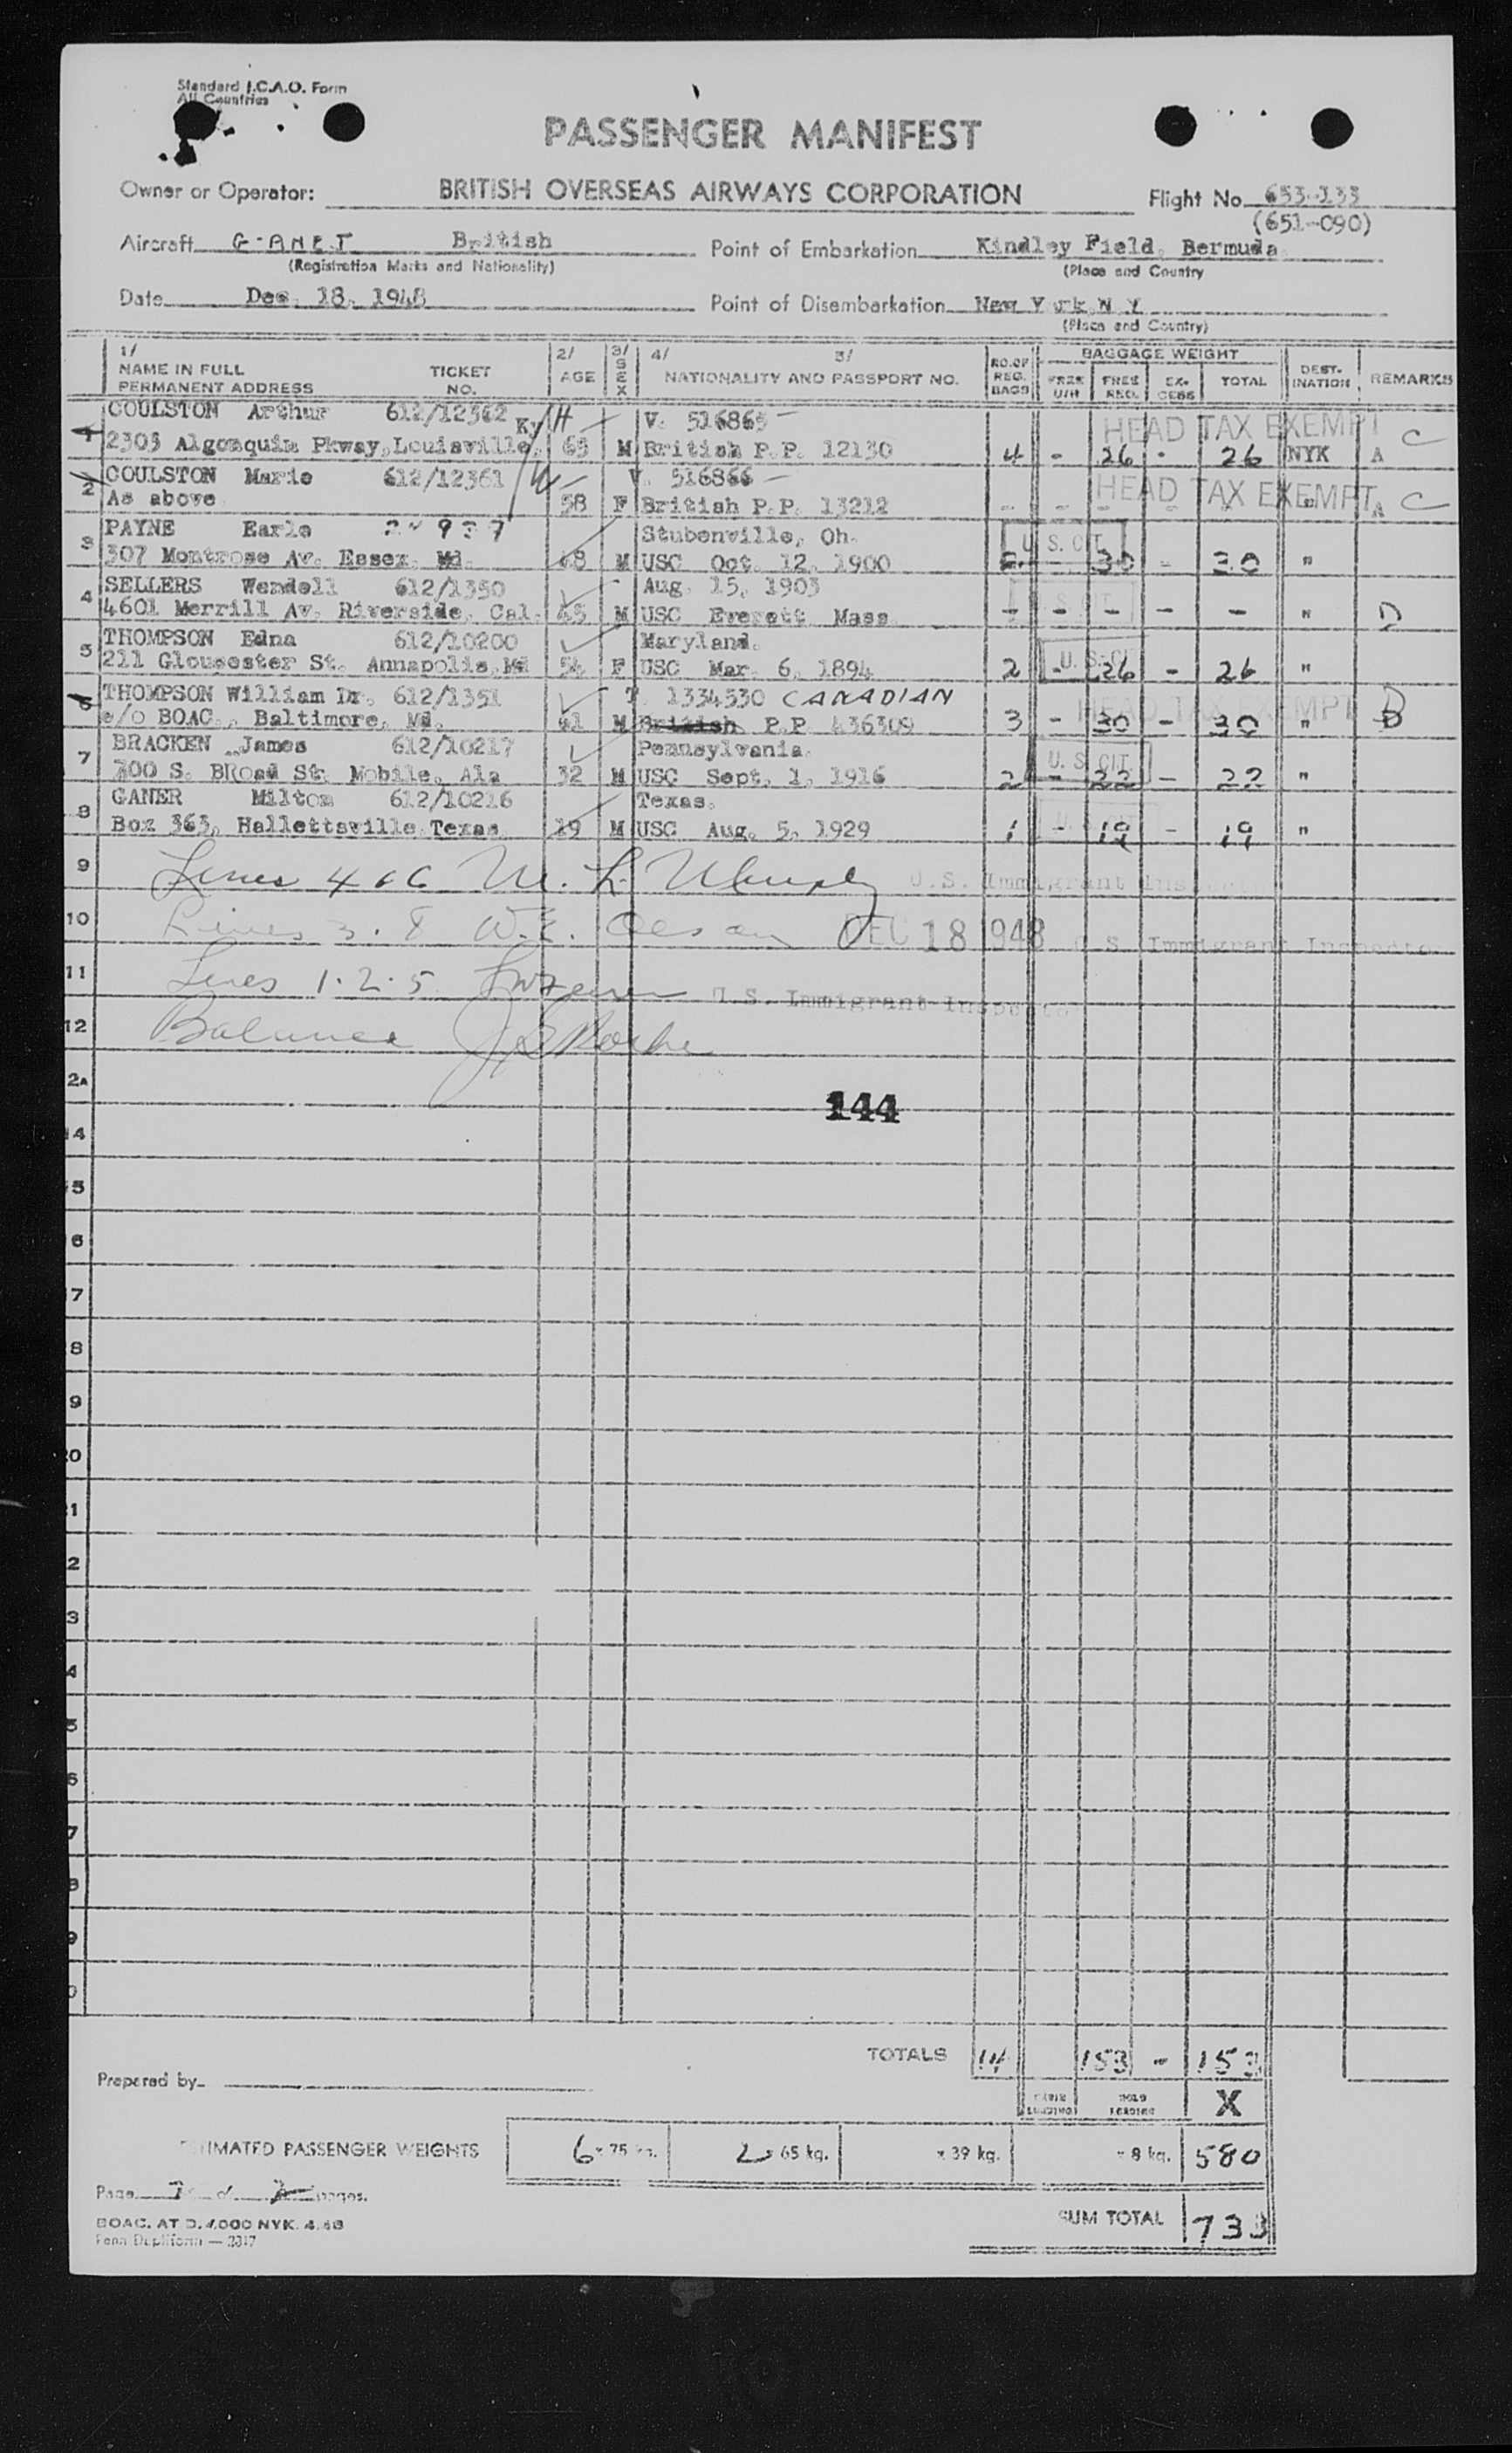 Standard I.C.A.O. Form
All Countries
PASSENGER MANIFEST
Owner or Operator: BRITISH OVERSEAS AIRWAYS CORPORATION Flight No. 653-133
(651-090)
Aircraft British Point of Embarkation Kindley Field, Bermuda
(Registration Marks and Nationality) (Place and Country
Date Dec. 18, 1948 Point of Disembarkation New York N Y
(Place and Country)
1/ NAME IN FULL PERMANENT ADDRESS TICKET NO. 2/ AGE 3/ SEX 4/ 5/ NATIONALITY AND PASSPORT NO. NO. OF REG. BAGS BAGGAGE WEIGHT FREE U/H FREE REG. EX-CESS TOTAL DEST-INATION REMARKS
COULSTON Arthur 612/12362 Ky V. 516865 HEAD TAX EXEMPT C
1 2303 Algonquin Pkway, Louisville, 63 M British P.P. 12130 4 - 26 - 26 NYK A
COULSTON Marie 612/12361 V. 516866 HEAD TAX EXEMPT C
2 As above 58 F British P.P. 13212 - - - - - " A
PAYNE Earle Stubenville, Oh. U.S. CIT.
3 307 Montrose Av. Essex, Md. 48 M USC Oct. 12, 1900 2 - 30 - 30 "
SELLERS Wendell 612/1350 Aug. 15, 1903
4 4601 Merrill Av. Riverside, Cal. 45 M USC Everett Mass - - - - - " D
THOMPSON Edna 612/10200 Maryland. U.S. CIT
5 211 Gloucester St. Annapolis, Md 54 F USC Mar. 6, 1894 2 - 26 - 26 "
THOMPSON William Dr. 612/1351 T 1334530 CANADIAN HEAD TAX EXEMPT B
6 c/o BOAC., Baltimore, Md. 41 M British P.P. 436309 3 - 30 - 30 "
BRACKEN James 612/10217 Pennsylvania. U.S. CIT.
7 300 S. BRoad St. Mobile, Ala 32 M USC Sept. 1, 1916 2 - 22 - 22 "
GANER Milton 612/10216 Texas.
8 Box 363, Hallettsville Texas 19 M USC Aug. 5, 1929 1 - 19 - 19 "
9 Lines 4 & 6 M. L. U.S. Immigrant Inspector
10 Lines 3. 8 W.E. Olson DEC 18 1948 U.S. Immigrant Inspecto
11 Lines 1.2.5 U.S. Immigrant Inspecto
12 Balance
2A
144
14
15
6
7
8
9
20
1
2
3
4
5
6
7
8
9
0
TOTALS 14 153 - 153
Prepared by
CABIN LOADING HOLD LOADING X
ESTIMATED PASSENGER WEIGHTS 6 x 75 kg. 2 x 65 kg. x 39 kg. x 8 kg. 580
Page of pages.
BOAC. AT D. 4,000 NYK. 4.48 SUM TOTAL 733
Penn Dupliform — 2317